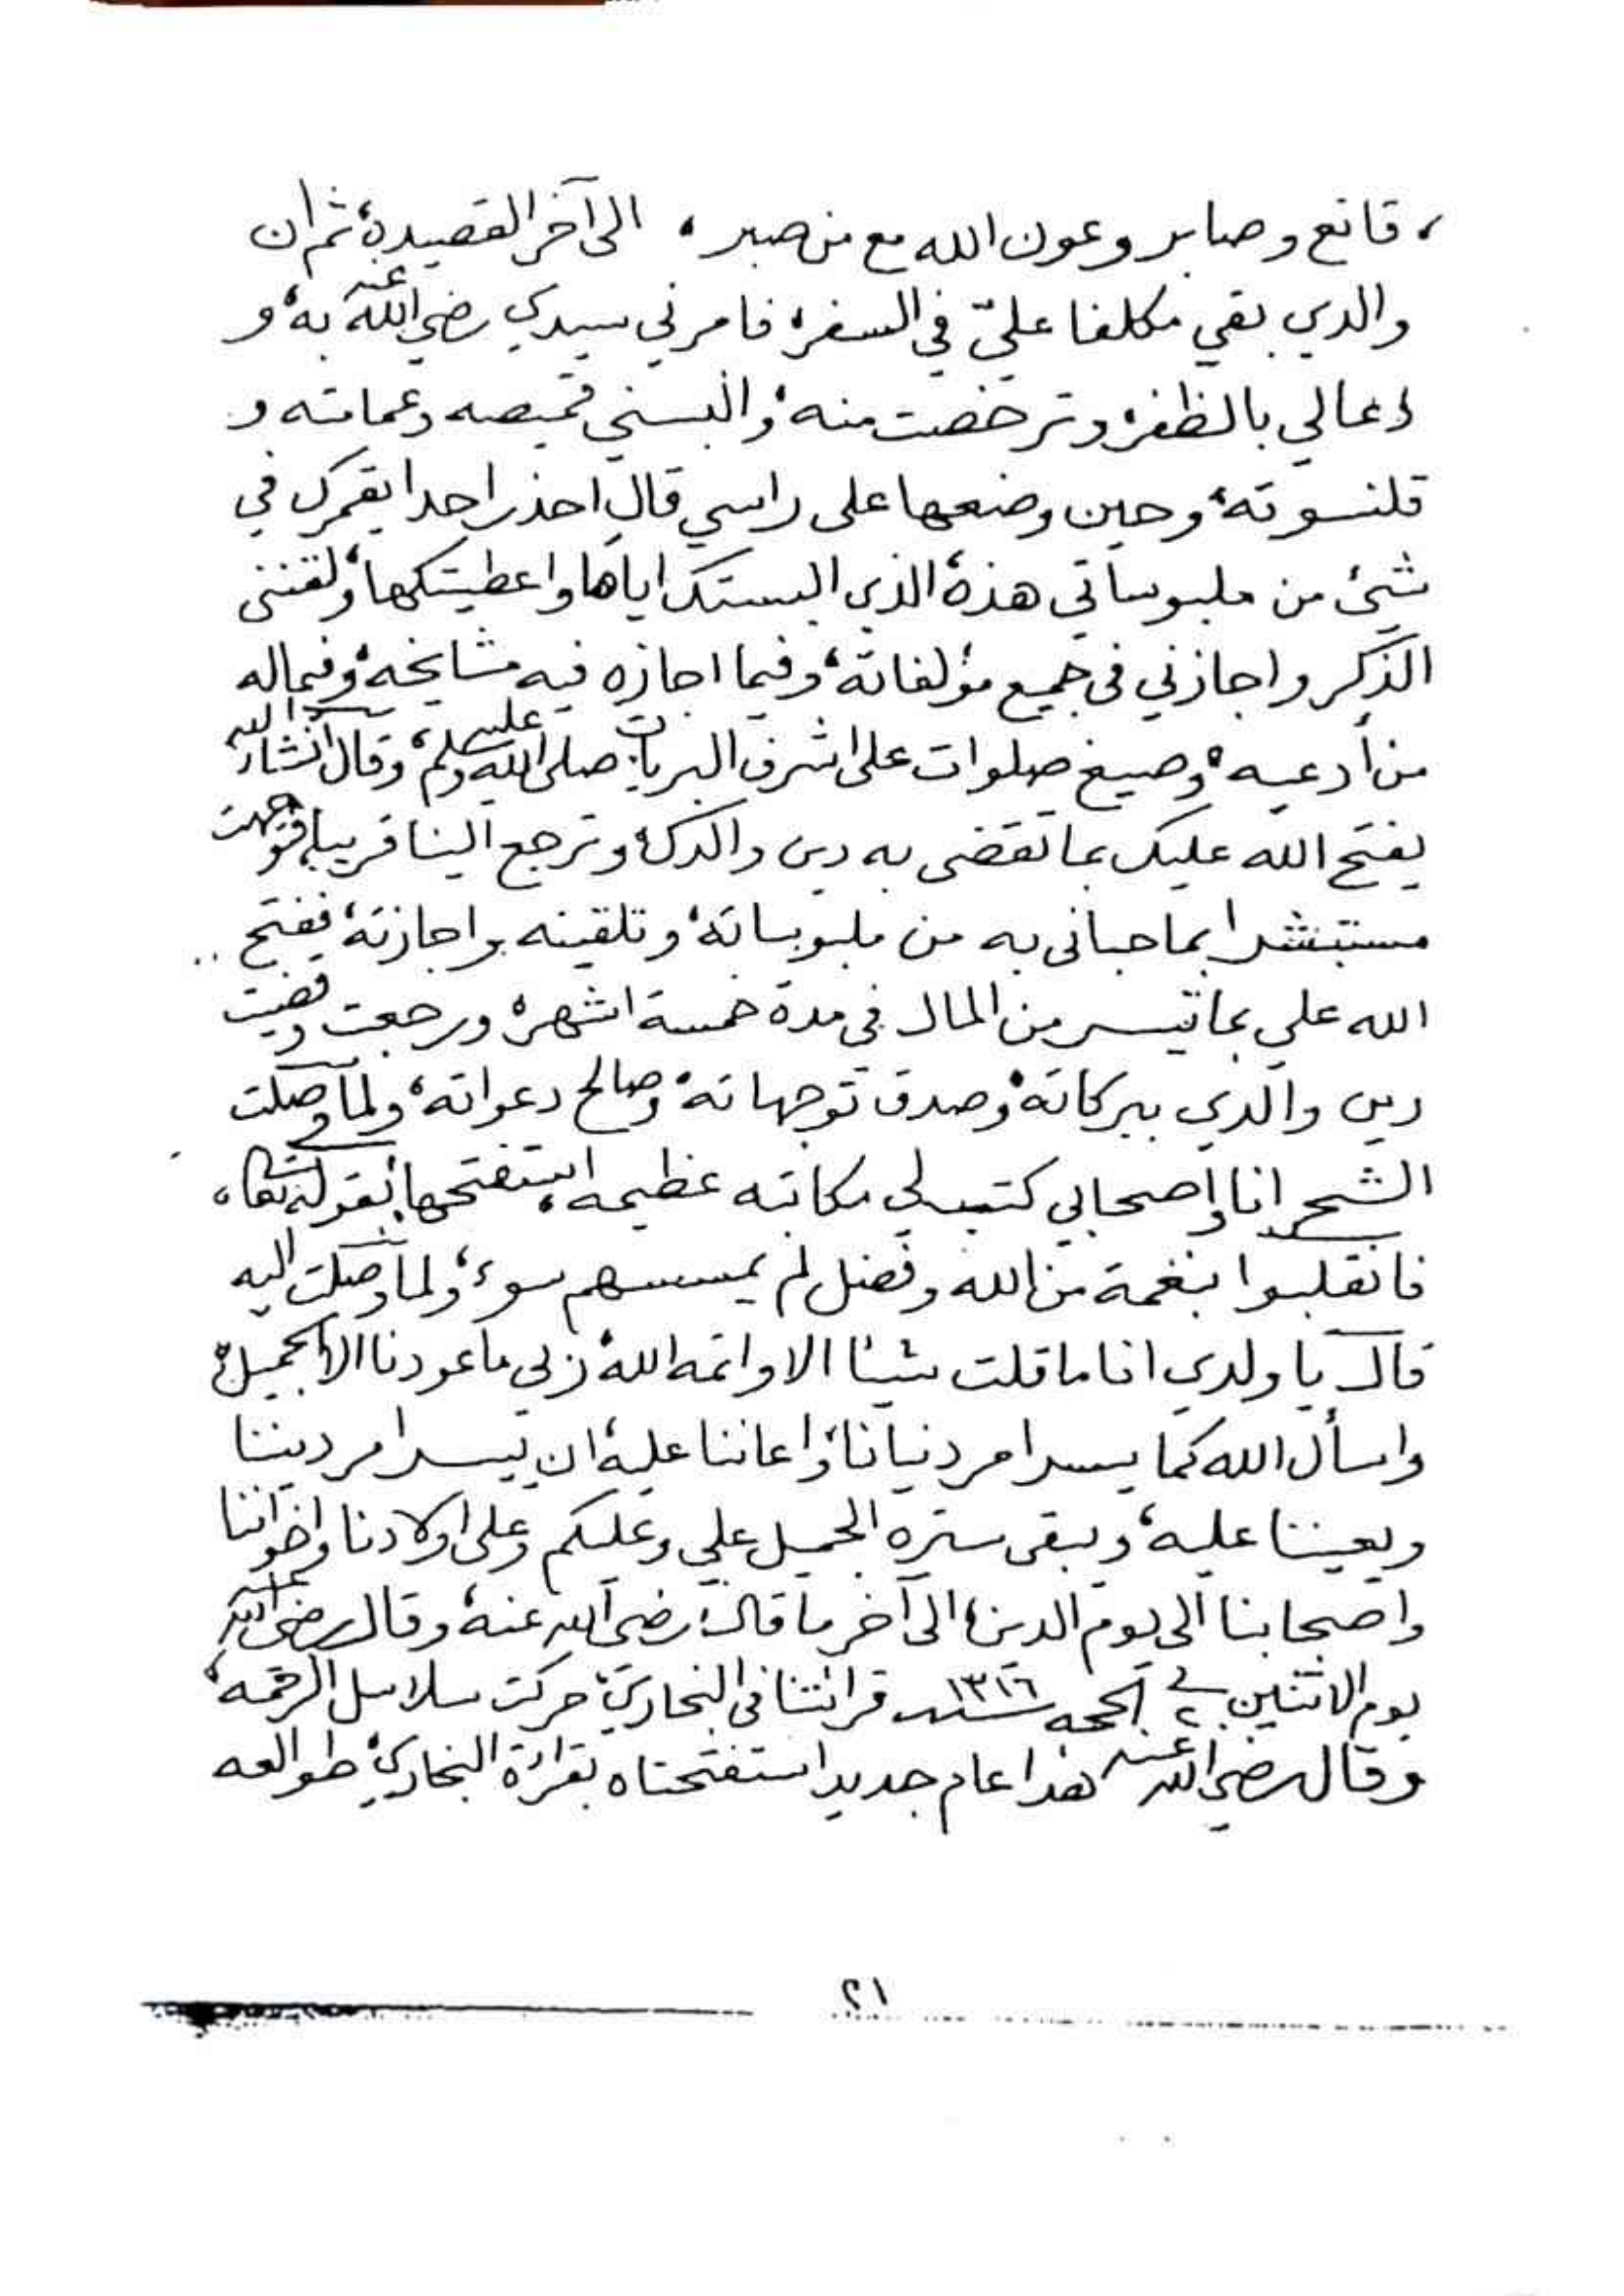 ، قانع وصابر وعون الله مع من صبر ، الى آخر القصيدة، ثم ان
والدي بقي مكلفا عليّ في السفر، فامرني سيدي رضي الله عنه به، و
دعالي بالظفر، وترخصت منه، والبسني قميصه وعمامته و
قلنسوته، وحين وضعها على راسي قال احذر احدا يقمرك في
شيء من ملبوساتي هذه، الذي البستك اياها واعطيتكها، ولقنني
الذكر واجازني في جميع مؤلفاته، وفيما اجازه فيه مشايخه، وفيماله
من أدعيه، وصيغ صلوات على اشرف البريات صلى الله عليه وسلم، وقال ان شاء الله
يفتح الله عليك بما تقضى به دين والدك، وترجع الينا قريبا، فتوجهت
مستبشرا بما حباني به من ملبوساته، وتلقينه واجازته، ففتح
الله علي بما تيسر من المال في مدة خمسة اشهر، ورجعت وقضيت
دين والدي ببركاته، وصدق توجهاته، وصالح دعواته، ولما وصلت
الشحر انا واصحابي كتب لي مكاتبه عظيمه، استفتحها بقوله تعالى،
فانقلبوا بنعمة من الله وفضل لم يمسسهم سوء، ولما وصلت اليه
قال يا ولدي انا ما قلت شيئا الا واتمه الله، ربي ما عودنا الا الجميل،
واسأل الله كما يسر امر دنيانا، واعاننا عليه، ان ييسر امر ديننا
ويعيننا عليه، ويبقى ستره الجميل علي وعليكم وعلى اولادنا واخواننا
واصحابنا الى يوم الدين، الى آخر ما قال، رضي الله عنه، وقال رضي الله عنه
يوم الاثنين ٢ في الحجه سنة ١٣١٦ قرائتنا في البخاري، حركت سلاسل الرحمه،
وقال رضي الله عنه هذا عام جديد استفتحناه بقراءة البخاري، طوالعه
٢١